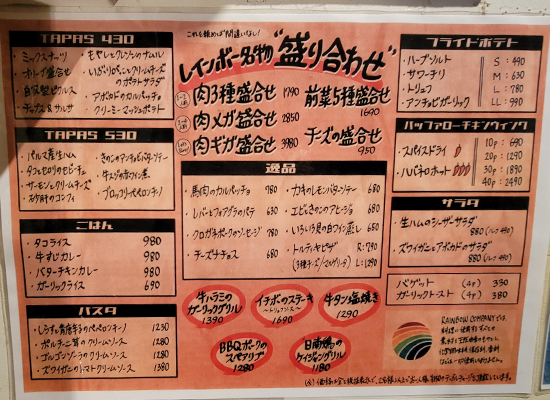 これを頼めば間違いなし!
レインボー名物 "盛り合わせ"
肉3種盛合せ 1790
肉メガ盛合せ 2850
肉ギガ盛合せ 3980
前菜5種盛合せ
1690
チーズの盛合せ
950
TAPAS 430
・ミックスナッツ
・オリーブ盛合せ
・自家製ピクルス
・チップス&サルサ
・もやしとクレソンのナムル
のポテトサラダ
・アボカドのカルパッチョ
・クリーミーマッシュポテト
TAPAS 530
・パルマ産生ハム
・タコとセロリのセビーチェ
・サーモンとクリームチーズ
・砂肝のコンフィ
・きのこのアンチョビバターソテー
・牛スジの赤ワイン煮
・ブロッコリーペペロンチーノ
ごはん
・タコライス 980
・牛すじカレー 980
・バターチキンカレー 980
・ガーリックライス 690
パスタ
・しらすと青唐辛子のペペロンチーノ 1230
・ポルチーニ茸のクリームソース 1280
・ゴルゴンゾーラのクリームソース 1280
・ズワイガニのトマトクリームソース 1380
逸品
・馬肉のカルパッチョ 780
・レバーとフォアグラのパテ 630
・クロガネポークのソーセージ 780
・チーズナチョス 680
・カキのレモンバターソテー 680
・エビときのこのアヒージョ 680
・いろいろ貝の白ワイン蒸し 650
・トルティヤピザ R: 790
(3種チーズ/マルゲリータ) L: 1290
牛ハラミの
ガーリックグリル
1390
イチボのステーキ
~トリュフソース~
1690
牛タン塩焼き
1290
BBQポークの
スペアリブ
1280
日南鶏の
ケイジャングリル
1180
フライドポテト
・ハーブソルト S : 490
・サワーチリ M : 630
・トリュフ L : 780
・アンチョビガーリック LL : 990
バッファローチキンウイング
・スパイスドライ
・ハバネロホット
10p : 690
20p : 1290
30p : 1890
40p : 2490
サラダ
・生ハムのシーザーサラダ
880 (ハーフ 490)
・ズワイガニとアボカドのサラダ
880 (ハーフ 490)
・バゲット (4p) 330
・ガーリックトースト (4p) 380
RAINBOW COMPANY では、